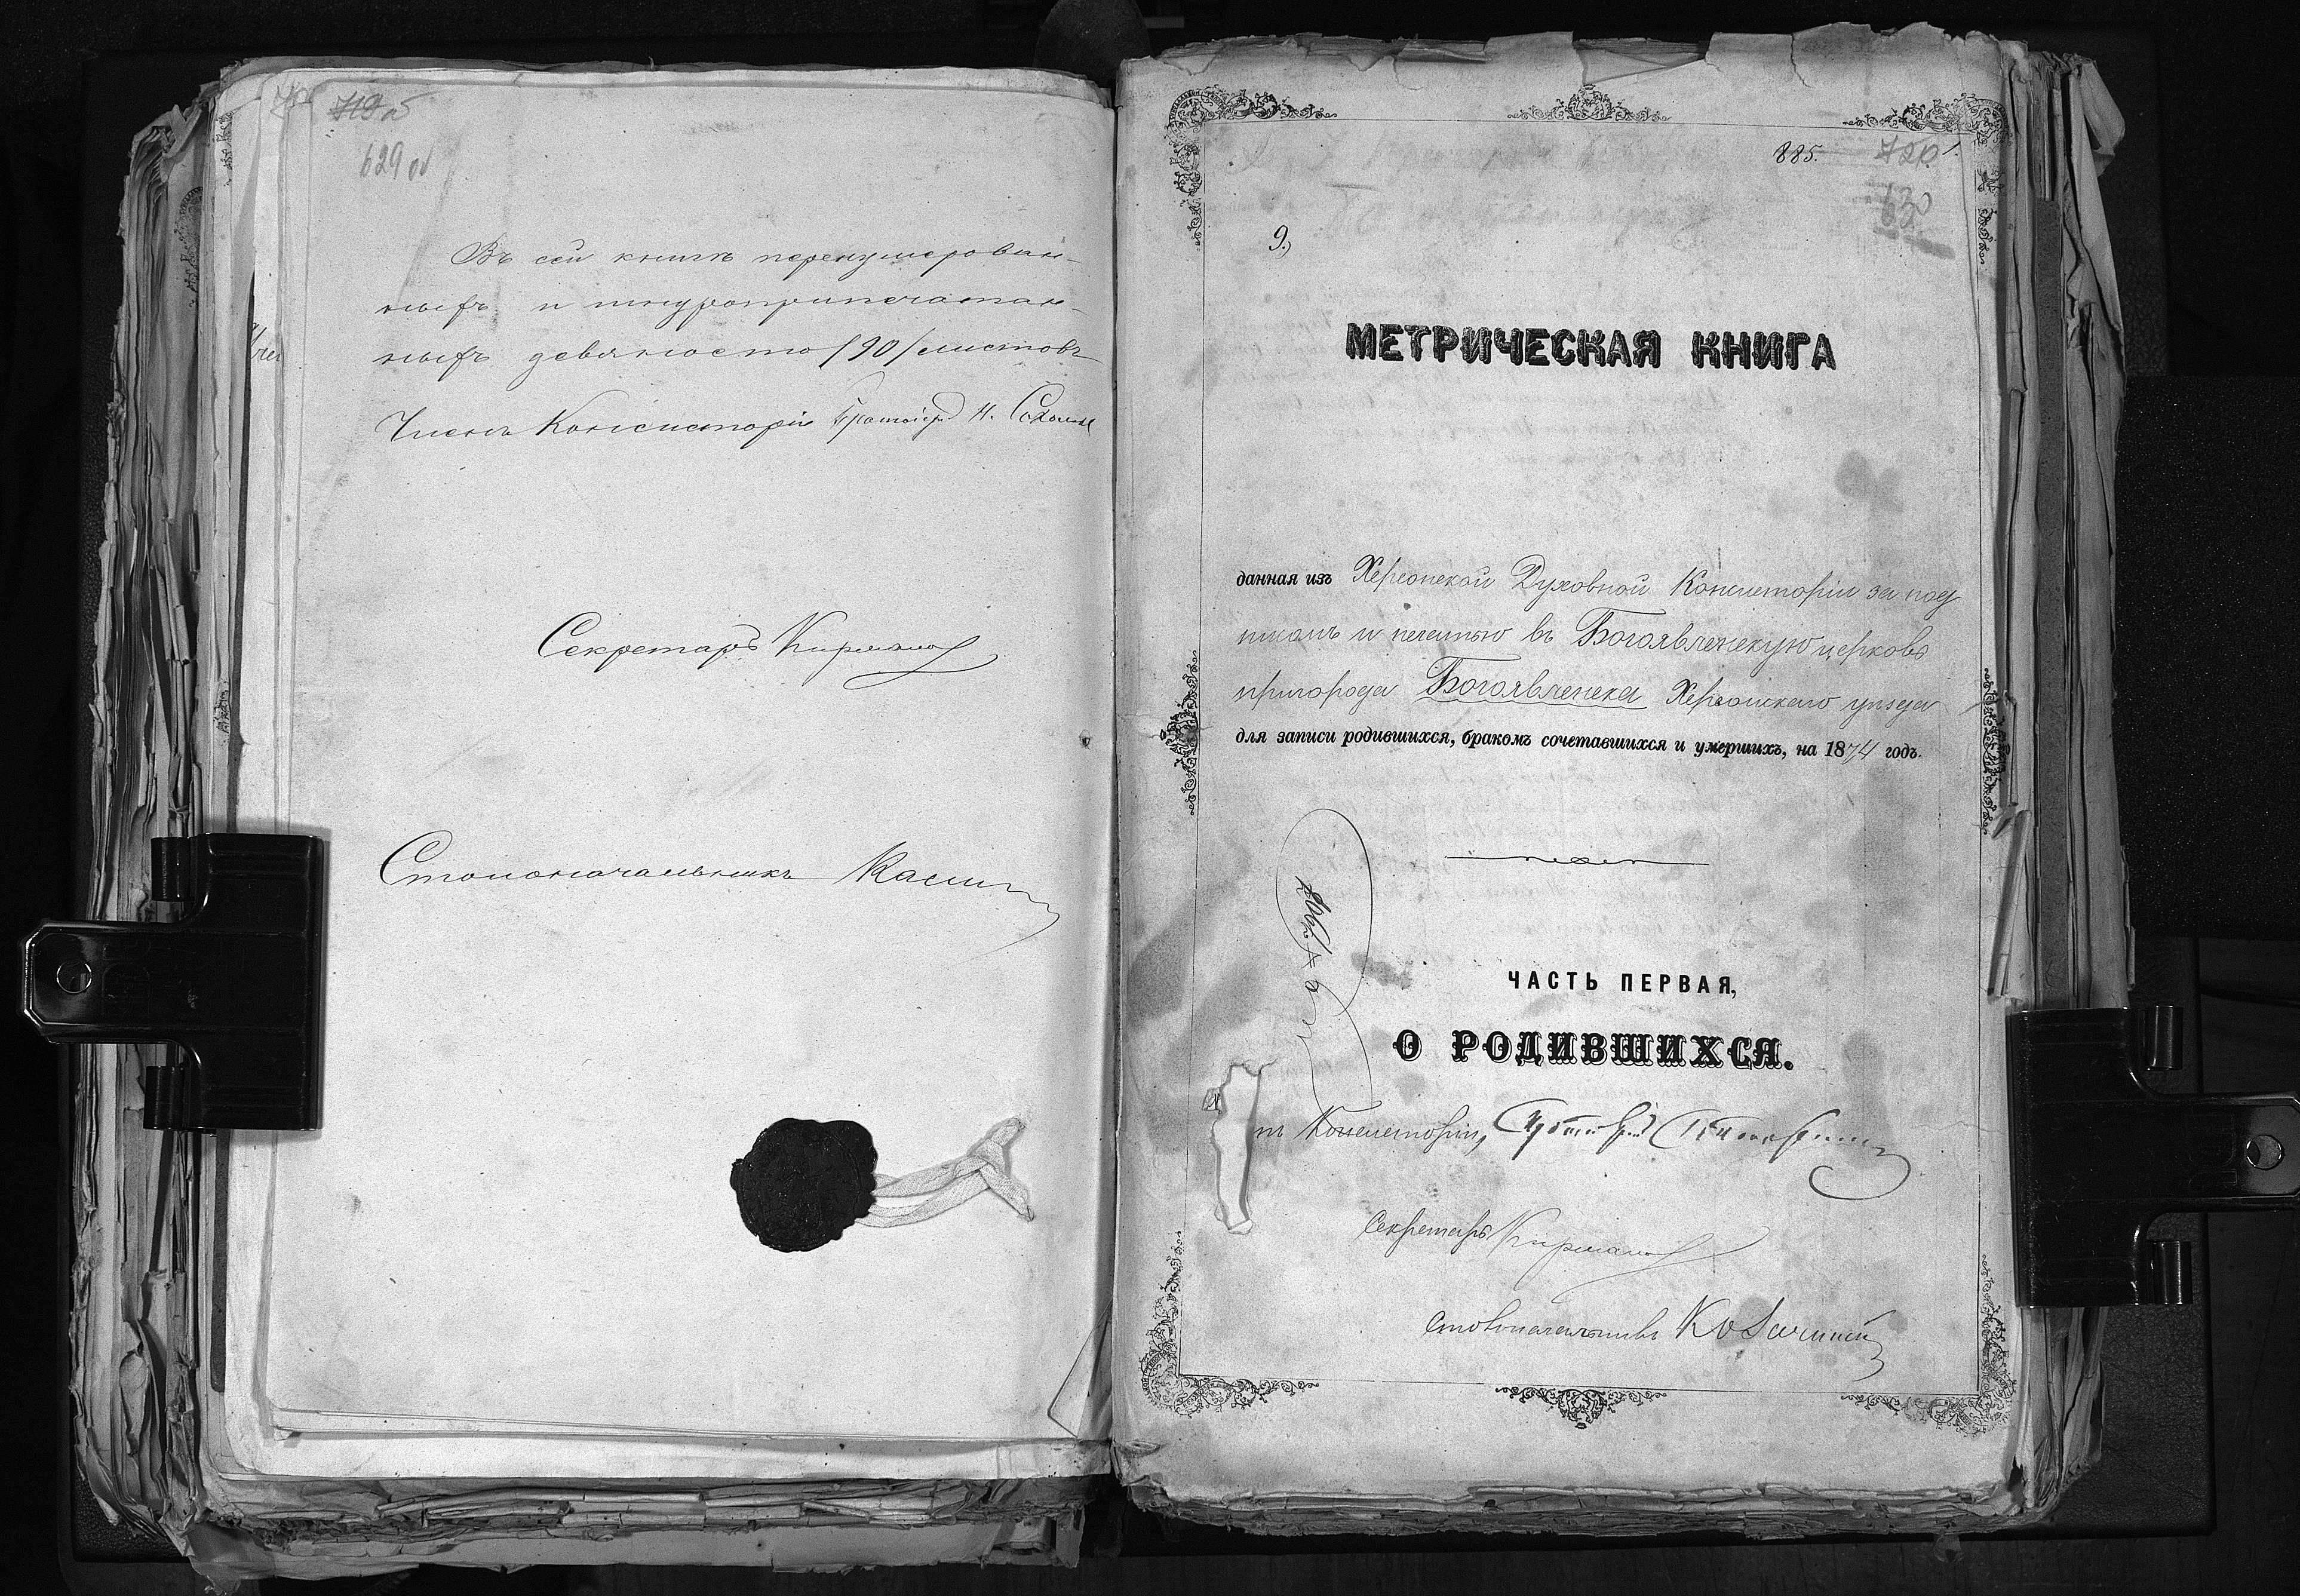 719 об
629 об
Въ сей книгѣ перенумерован-
ныхъ и шнуроприпечатан-
ныхъ девяносто /90/ листовъ
Членъ Консисторіи Протоіерей Н. Соколовъ
Секретарь
Столоначальникъ
885. 720 1.
630
9.,
МЕТРИЧЕСКАЯ КНИГА
данная изъ Херсонской Духовной Консисторіи за под
писомъ и печатью въ Богоявленскую церковь
пригорода Богоявленска Херсонскаго уѣзда
для записи родившихся, бракомъ сочетавшихся и умершихъ, на 1874 годъ.
ЧАСТЬ ПЕРВАЯ,
О РОДИВШИХСЯ.
нъ Консисторіи,
Секретарь
Столоначальникъ